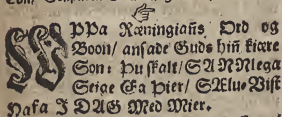 UPpa Ræningians Ord og
Boon/ ansade Guds hiñ kiære
Son: Þu skalt/ SANNlega
Seige Eg Þier/ SÆlu-Vist
Hafa I DAG Med Mier.